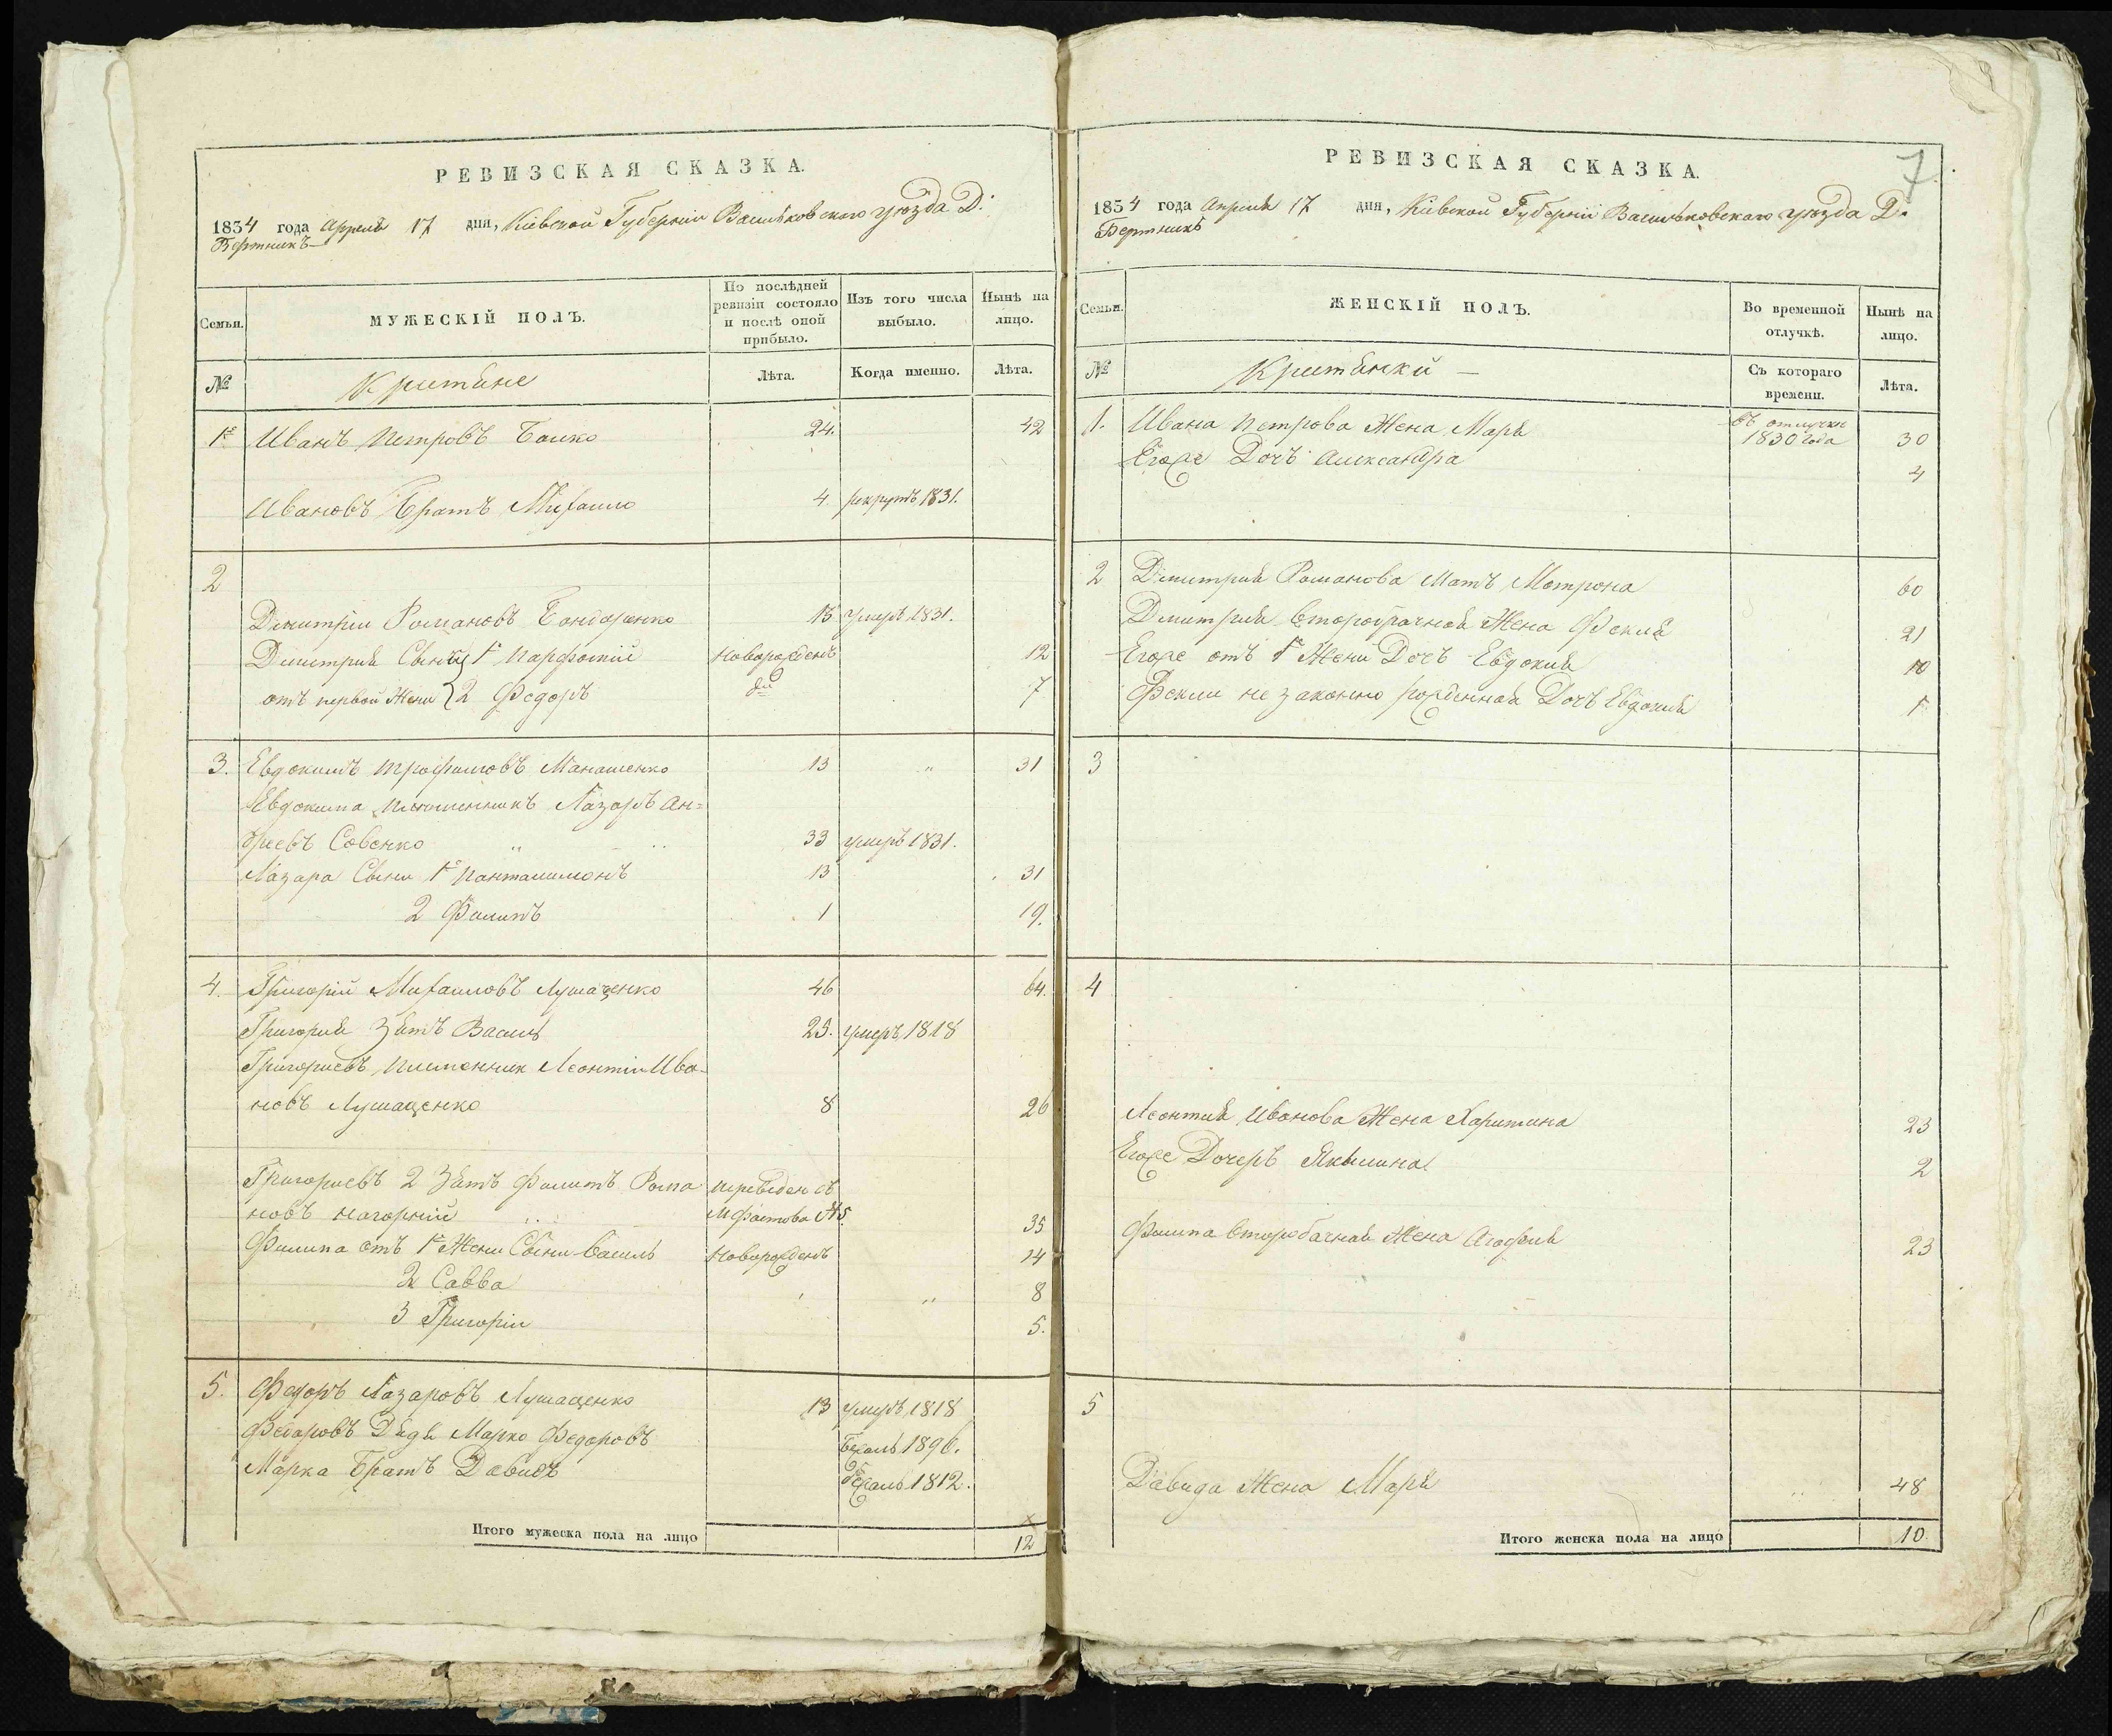 РЕВИЗСКАЯ СКАЗКА.
1834 года Апреля 17 дня, Кіевской Губерніи Васильковского уѣзда Д:
Вертникъ
Семьи.
МУЖЕСКІЙ ПОЛЪ.
По послѣдней ревизіи состояло и послѣ оной прибыло.
Изъ того числа выбыло.
Нынѣ на лицо.
№
Кристяне
Лѣта.
Когда именно.
Лѣта.
1е Иванъ Петровъ Бойко 24. 42
Ивановъ Братъ Михайло 4. рекрутъ 1831.
2
Димитрій Романовъ Бондаренко 15 умеръ 1831.
Димитрія Сыны 1е Парфеній новорожденъ 12
отъ первой Жени 2 Федоръ 7
3. Евдокимъ Трофимовъ Манашенко 13 " 31
Евдокима племенникъ Лазаръ Ан=
дреевъ Совенко " 33 умеръ 1831.
Лазара Сыни 1е Панталимонъ 13 31
2 Филипъ 1 19.
4. Григорій Михаиловъ Лушаценко 46 64.
Григорія Зятъ Василь 25. умеръ 1818
Григориевъ племенник Леонтій Ива-
новъ Лушаценко 8 26
Григориевъ 2 Зятъ Филипъ Рома переведен съ
новъ Нагорній М Фастова 35
Филипа отъ 1е Жени Сыни Василь новорожденъ 14
2 Савва " 8
3 Григорій 5.
5. Федоръ Лазаровъ Лушаценко 13 умеръ 1818
Федоровъ Дядя Марко Федоровъ бежалъ
Марка Братъ Давидъ бежалъ 1812.
Итого мужеска пола на лицо 12
7
РЕВИЗСКАЯ СКАЗКА.
1834 года Апреля 17 дня, Кіевской Губерніи Васильковскаго уѣзда Д.
Вертникъ
Семьи.
ЖЕНСКІЙ ПОЛЪ.
Во временной отлучкѣ.
Нынѣ на лицо.
№
Кристянки —
Съ котораго времени.
Лѣта.
1. Ивана Петрова Жена Маря въ отлучки 1830 года 30
Егоже Дочъ Александра 4
2 Димитрия Романова Матъ Мотрона 60
Дмитрия второбрачная Жена Фекла 21
Егоже отъ 1е Жени Дочъ Евдокия 10
Фекли не законно рожденная Дочъ Евдокия 1
3
4
Леонтия Иванова Жена Харитина 23
Егоже Дочеръ Якилина 2
Филипа второбачная Жена Агафия 23
5
Давида Жена Маря " 48
Итого женска пола на лицо 10